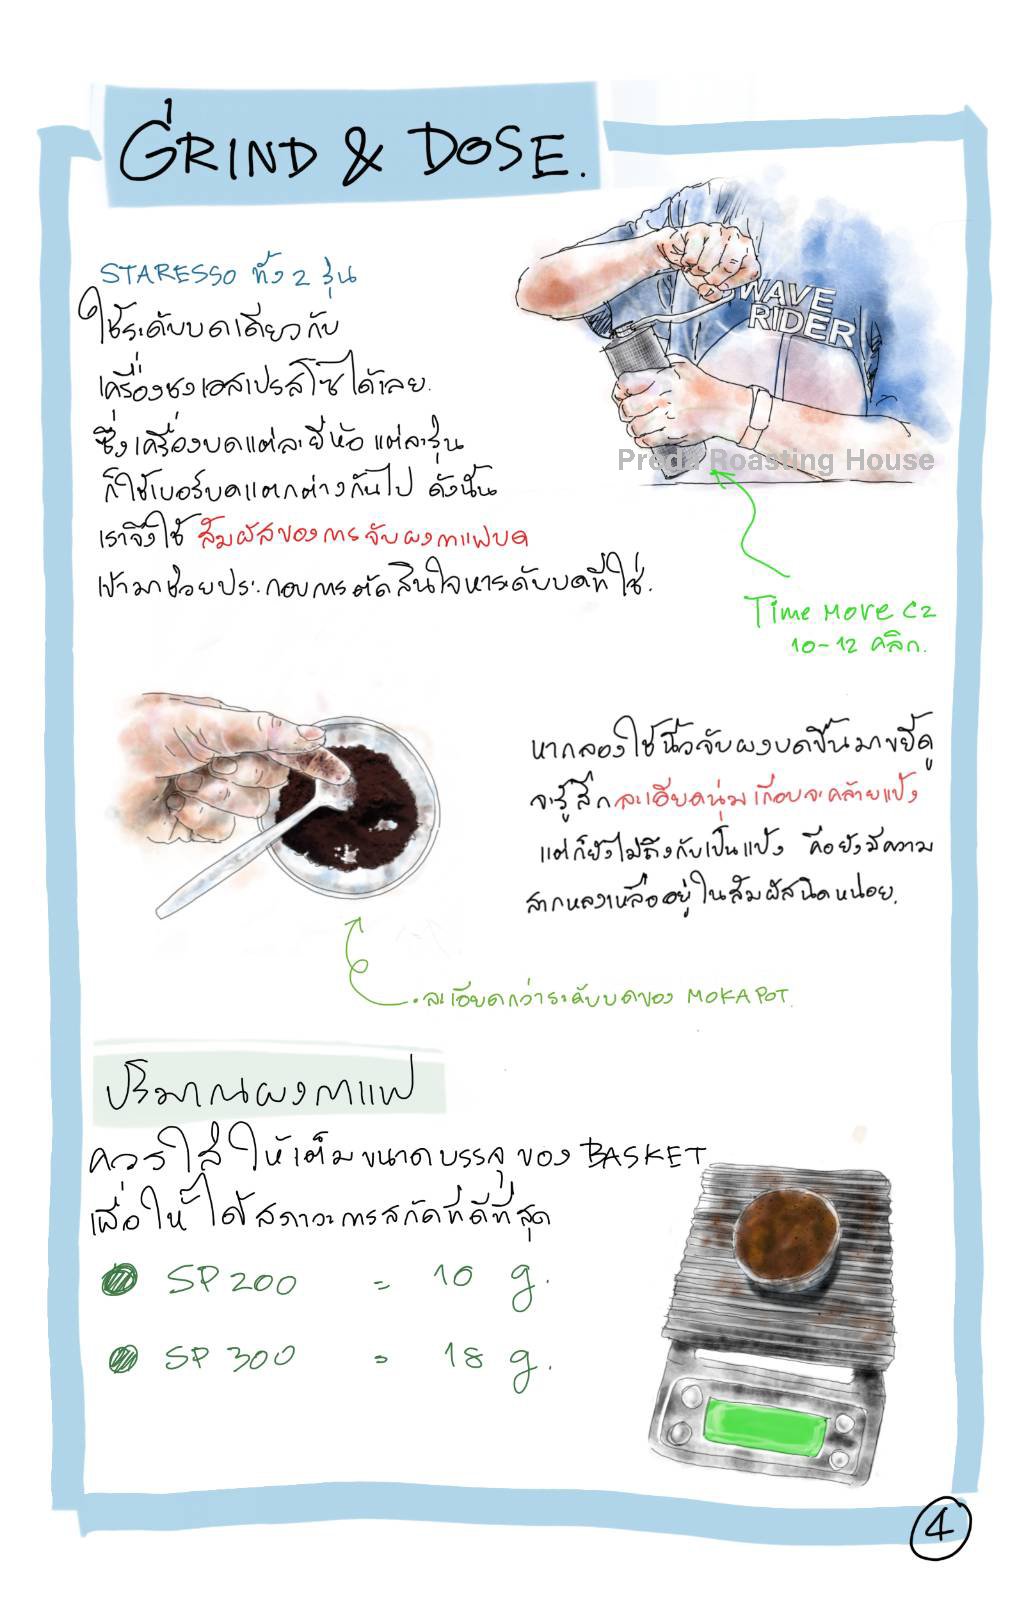 GRIND & DOSE.
STARESSO ทั้ง 2 รุ่น
ใช้ระดับบดเดียวกับ
เครื่องชงเอสเปรสโซได้เลย.
ซึ่งเครื่องบดแต่ละยี่ห้อ แต่ละรุ่น
ก็ใช้เบอร์บดแตกต่างกันไป ดังนั้น
เราจึงใช้ สัมผัสของการจับผงกาแฟบด
เข้ามาช่วยประกอบการตัดสินใจหาระดับบดที่ใช่.
WAVE
RIDER
Preda Roasting House
Time More C2
10-12 คลิก.
หากลองใช้นิ้วจับผงบดขึ้นมาขยี้ดู
จะรู้สึกละเอียดนุ่มเกือบจะคล้ายแป้ง
แต่ก็ยังไม่ถึงกับเป็นแป้ง คือยังมีความ
สากหลงเหลืออยู่ในสัมผัสนิดหน่อย.
ละเอียดกว่าระดับบดของ MOKA POT.
ปริมาณผงกาแฟ
ควรใส่ให้เต็มขนาดบรรจุของ BASKET
เพื่อให้ได้สภาวะการสกัดที่ดีที่สุด
SP200 = 10 g.
SP300 = 18 g.
4